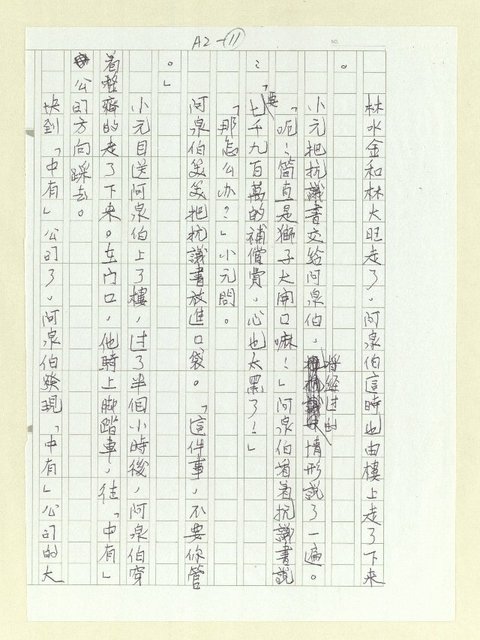 A2-11
林水金和林大旺走了，阿泉伯這時也由樓上走了下來
。
小元把抗議書交給阿泉伯，將經過的情形說了一遍。
「呃！簡直是獅子大開口嘛！」阿泉伯看着抗議書說
：「要七千九百萬的補償費，心也太黑了！」
「那怎么办？」小元問。
阿泉伯笑笑把抗議書放進口袋。「這件事，不要你管
。」
小元目送阿泉伯上了樓，过了半個小時後，阿泉伯穿
着整齊的走了下來。在门口，他騎上脚踏車，往「中有」
公司方向踩去。
快到「中有」公司了，阿泉伯發現「中有」公司的大